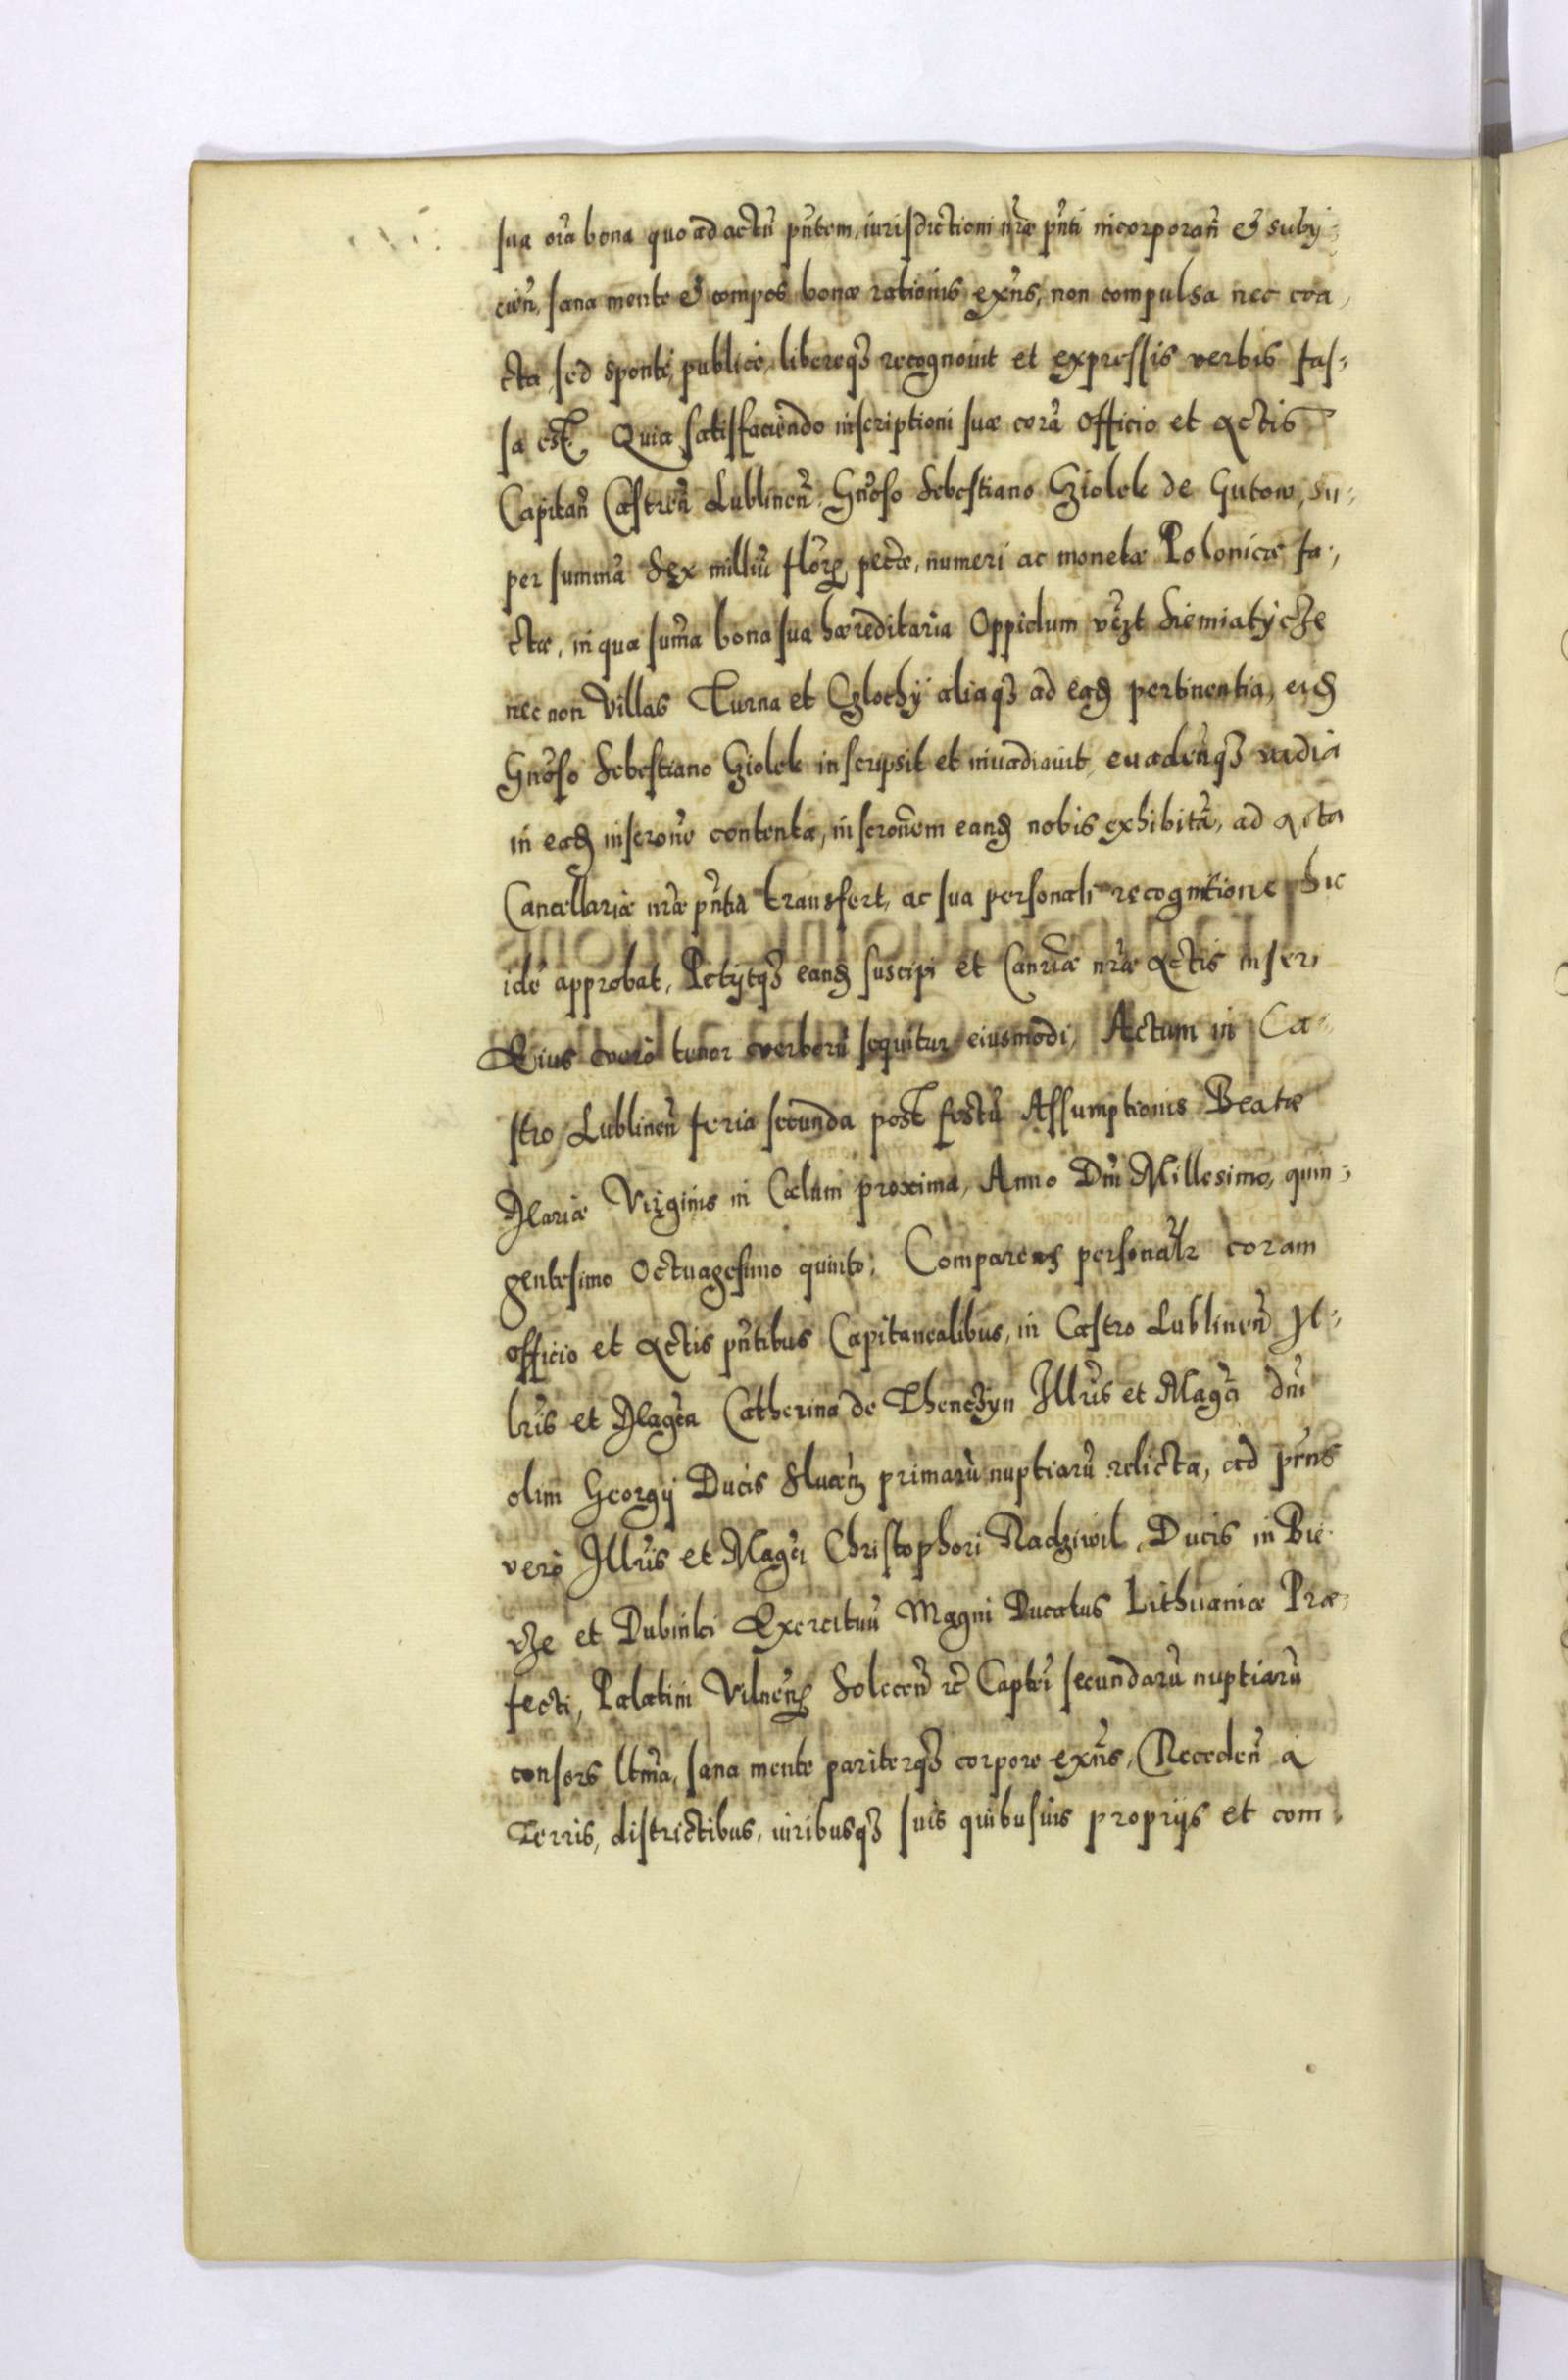 sua oia bona quo ad actũ pñtem, iurisdictioni nrãe pñti incorporañ & suby-
cieñ, sana mente & compos bonæ rationis exñs, non compulsa nec coa,
cta, sed sponte, publice, libereqз recognouit et expressis verbis fas-
sa est. Quia satisfaciendo inscriptioni suæ corã Officio et Actis
Capitañ Castreñ Lublineñ, Gnõso Sebestiano Gziolek de Gutow, su-
per summã Sex milliũ florꝝ pecũe, numeri ac monetæ Polonicæ fa-,
ctæ, in qua suma bona sua hæreditaria Oppidum vczt Siemiatycze
nec non Villas Turna et Czlochy aliaqз ad eaꝺ pertinentia, eiꝺ
Gnõso Sebestiano Gziolek inscripsit et inuadiauit, euadeñqз uadia
in eaꝺ inscrone contenta, inscronem eanꝺ nobis exhibitã, ad Acta
Cancellariæ nrãe pñtia transfert, ac sua personali recognitione hic
idẽ approbat, Petijtqз eanꝺ suscipi et Canriæ nrãe Actis inseri
Eius vero tenor verborũ sequitur eiusmodi, Actum in Ca-
stro Lublineñ feria secunda post festũ Assumptionis Beatæ
Mariæ Virginis in Cælum proxima, Anno Dñi Millesimo, quin-
gentesimo Octuagesimo quinto. Comparens personalr coram
officio et Actis pñtibus Capitanealibus, in Castro Lublineñ Il-
lris et Magca Catherina de Thenczyn Illris et Magci dñi
olim Georgij Ducis Slucen primarũ nuptiarũ relicta, ad prñs
vero Illris et Magci Christophori Radziwil, Ducis in Bie
rze et Dubinki Exercituũ Magni Ducatus Lithuaniæ Præ-
fecti, Palatini Vilneñ, Soleceñ &c Captei secundarũ nuptiarũ
consors ltma, sana mente pariterqз corpore exñs, Recedeñ à
Terris, districtibus, iuribusqз suis quibusuis proprijs et com-